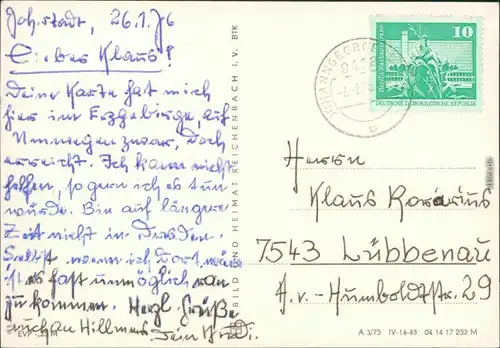 Joh'stadt, 26.1.76
Lieber Klaus!
Deine Karte hat mich
hier im Erzgebirge, auf
Umwegen zwar, doch
erreicht. Ich kann nicht
helfen, so gern ich es tun
würde. Bin auf längere
Zeit nicht in Dresden.
Selbst wenn ich dort wär
ist es fast unmöglich ran
zukommen. Herzl. Grüße
auch an Hillmers. Dein
EVP
BILD UND HEIMAT REICHENBACH I. V. BTK
10
DEUTSCHE DEMOKRATISCHE REPUBLIK
b
Herrn
Klaus Rosarius
7543 Lübbenau
A.v.-Humboldtstr. 29
A 3/75 IV-14-48 04 14 17 252 M